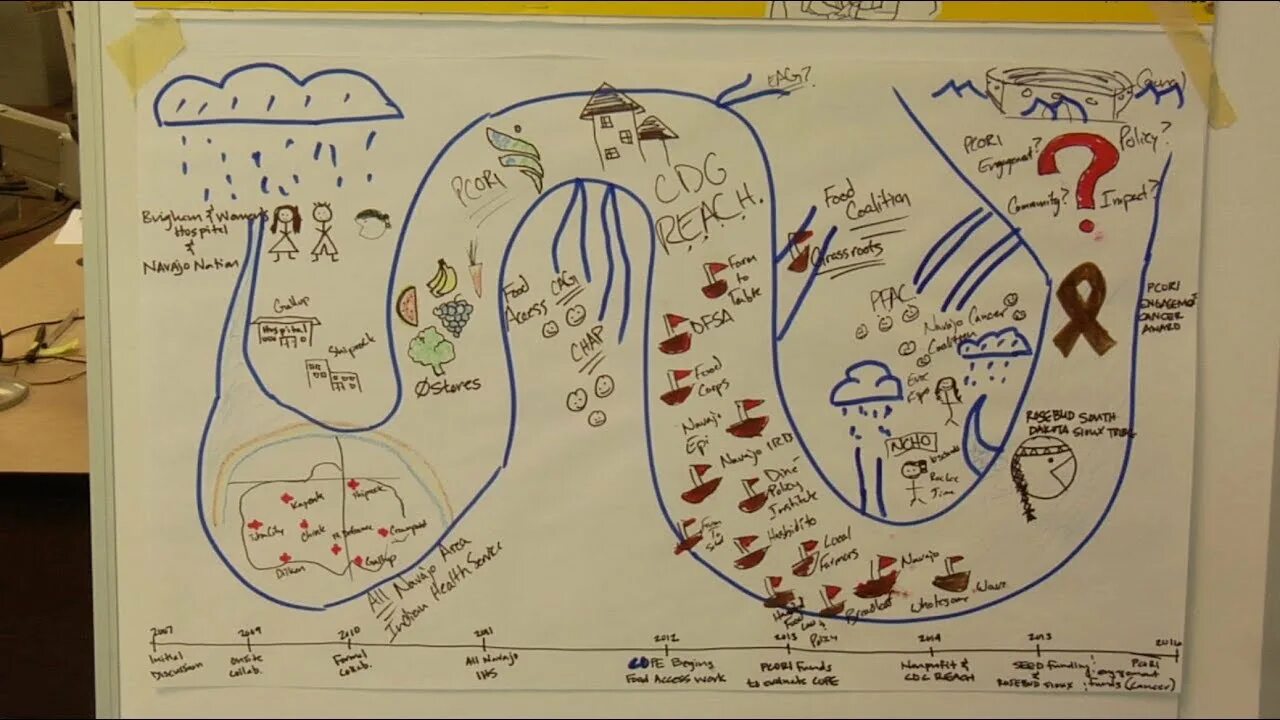 EAG?
Council
PCORI
Engagement?
Policy?
Community?
Impact?
PCORI
CDG
REACH.
Brigham & Women's
Hospital
&
Navajo Nation
Gallup
Hospital
Shiprock
ØStores
Food
Access
CAG
CHAP
Food
Coalition
Grassroots
Farm
to
Table
DFSA
Food
Corps
Navajo
Epi
Navajo IRB
Diné
Policy
Institute
Hashidito
Local
Farmers
Navajo
Breastfeed
Wholesome Wave
Food Law &
Policy
PFAC
Navajo Cancer
Coalition
NCHO
PCORI
ENGAGEMENT
CANCER
AWARD
ROSEBUD SOUTH
DAKOTA SIOUX TRIBE
Kayenta
Shiprock
Tuba City
Chinle
Ft Defiance
Crownpoint
Dilkon
Gallup
All Navajo Area
Indian Health Service
2007
Initial
Discussion
2009
Onsite
collab.
2010
Formal
Collab.
2011
All Navajo
IHS
2012
COPE Begins
Food Access work
2013
PCORI Funds
to evaluate COPE
2014
Nonprofit &
CDC REACH
2015
SEED funding
& ROSEBUD SIOUX
2016
PCORI
engagement
funds (cancer)